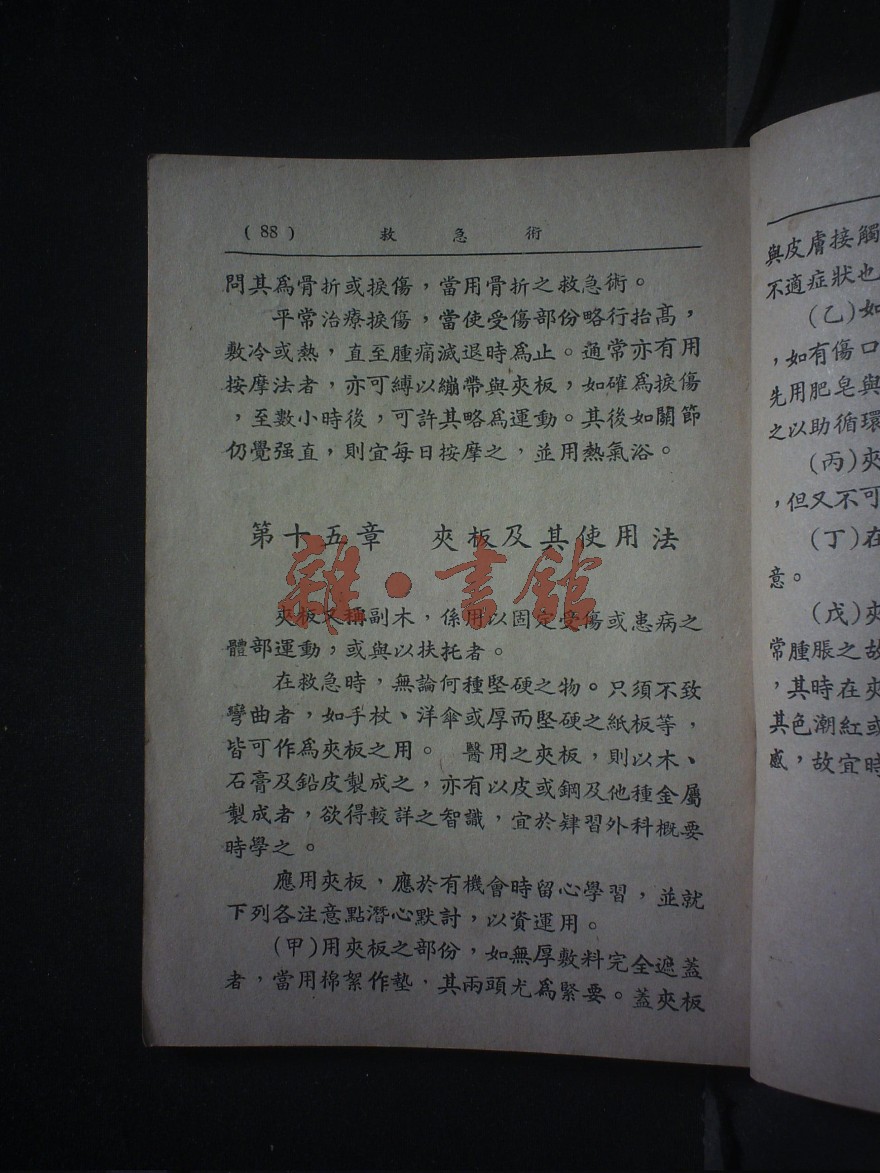 ( 88 )　救急術
問其爲骨折或捩傷，當用骨折之救急術。
平常治療捩傷，當使受傷部份略行抬高，
敷冷或熱，直至腫痛減退時爲止。通常亦有用
按摩法者，亦可縛以繃帶與夾板，如確爲捩傷
，至數小時後，可許其略爲運動。其後如關節
仍覺强直，則宜每日按摩之，並用熱氣浴。
第十五章　夾板及其使用法
雜·書館
夾板又稱副木，係用以固定受傷或患病之
體部運動，或與以扶托者。
在救急時，無論何種堅硬之物。只須不致
彎曲者，如手杖、洋傘或厚而堅硬之紙板等，
皆可作爲夾板之用。　醫用之夾板，則以木、
石膏及鉛皮製成之，亦有以皮或鋼及他種金屬
製成者，欲得較詳之智識，宜於肄習外科概要
時學之。
應用夾板，應於有機會時留心學習，並就
下列各注意點潛心默討，以資運用。
(甲)用夾板之部份，如無厚敷料完全遮蓋
者，當用棉絮作墊，其兩頭尤爲緊要。蓋夾板
與皮膚接觸
不適症狀也
(乙)如
，如有傷口
先用肥皂與
之以助循環
(丙)夾
，但又不可
(丁)在
意。
(戊)夾
常腫脹之故
，其時在夾
其色潮紅或
感，故宜時